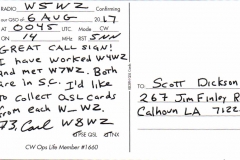 RADIO W5WZ Confirming
our QSO of 6 AUG 2017
at 0045 UTC Mode CW
on 14 MHz RST 5NN
GREAT CALL SIGN!
I HAVE WORKED W4WZ
AND MET W7WZ. BOTH
ARE IN SC. I'd LIKE
TO COLLECT QSL CARDS
FROM EACH W_WZ.
73, Carl W8WZ
PSE QSL TNX
CW Ops Life Member #1660
TO:
SCOTT DICKSON
267 JIM FINLEY R
CALHOUN LA 7122